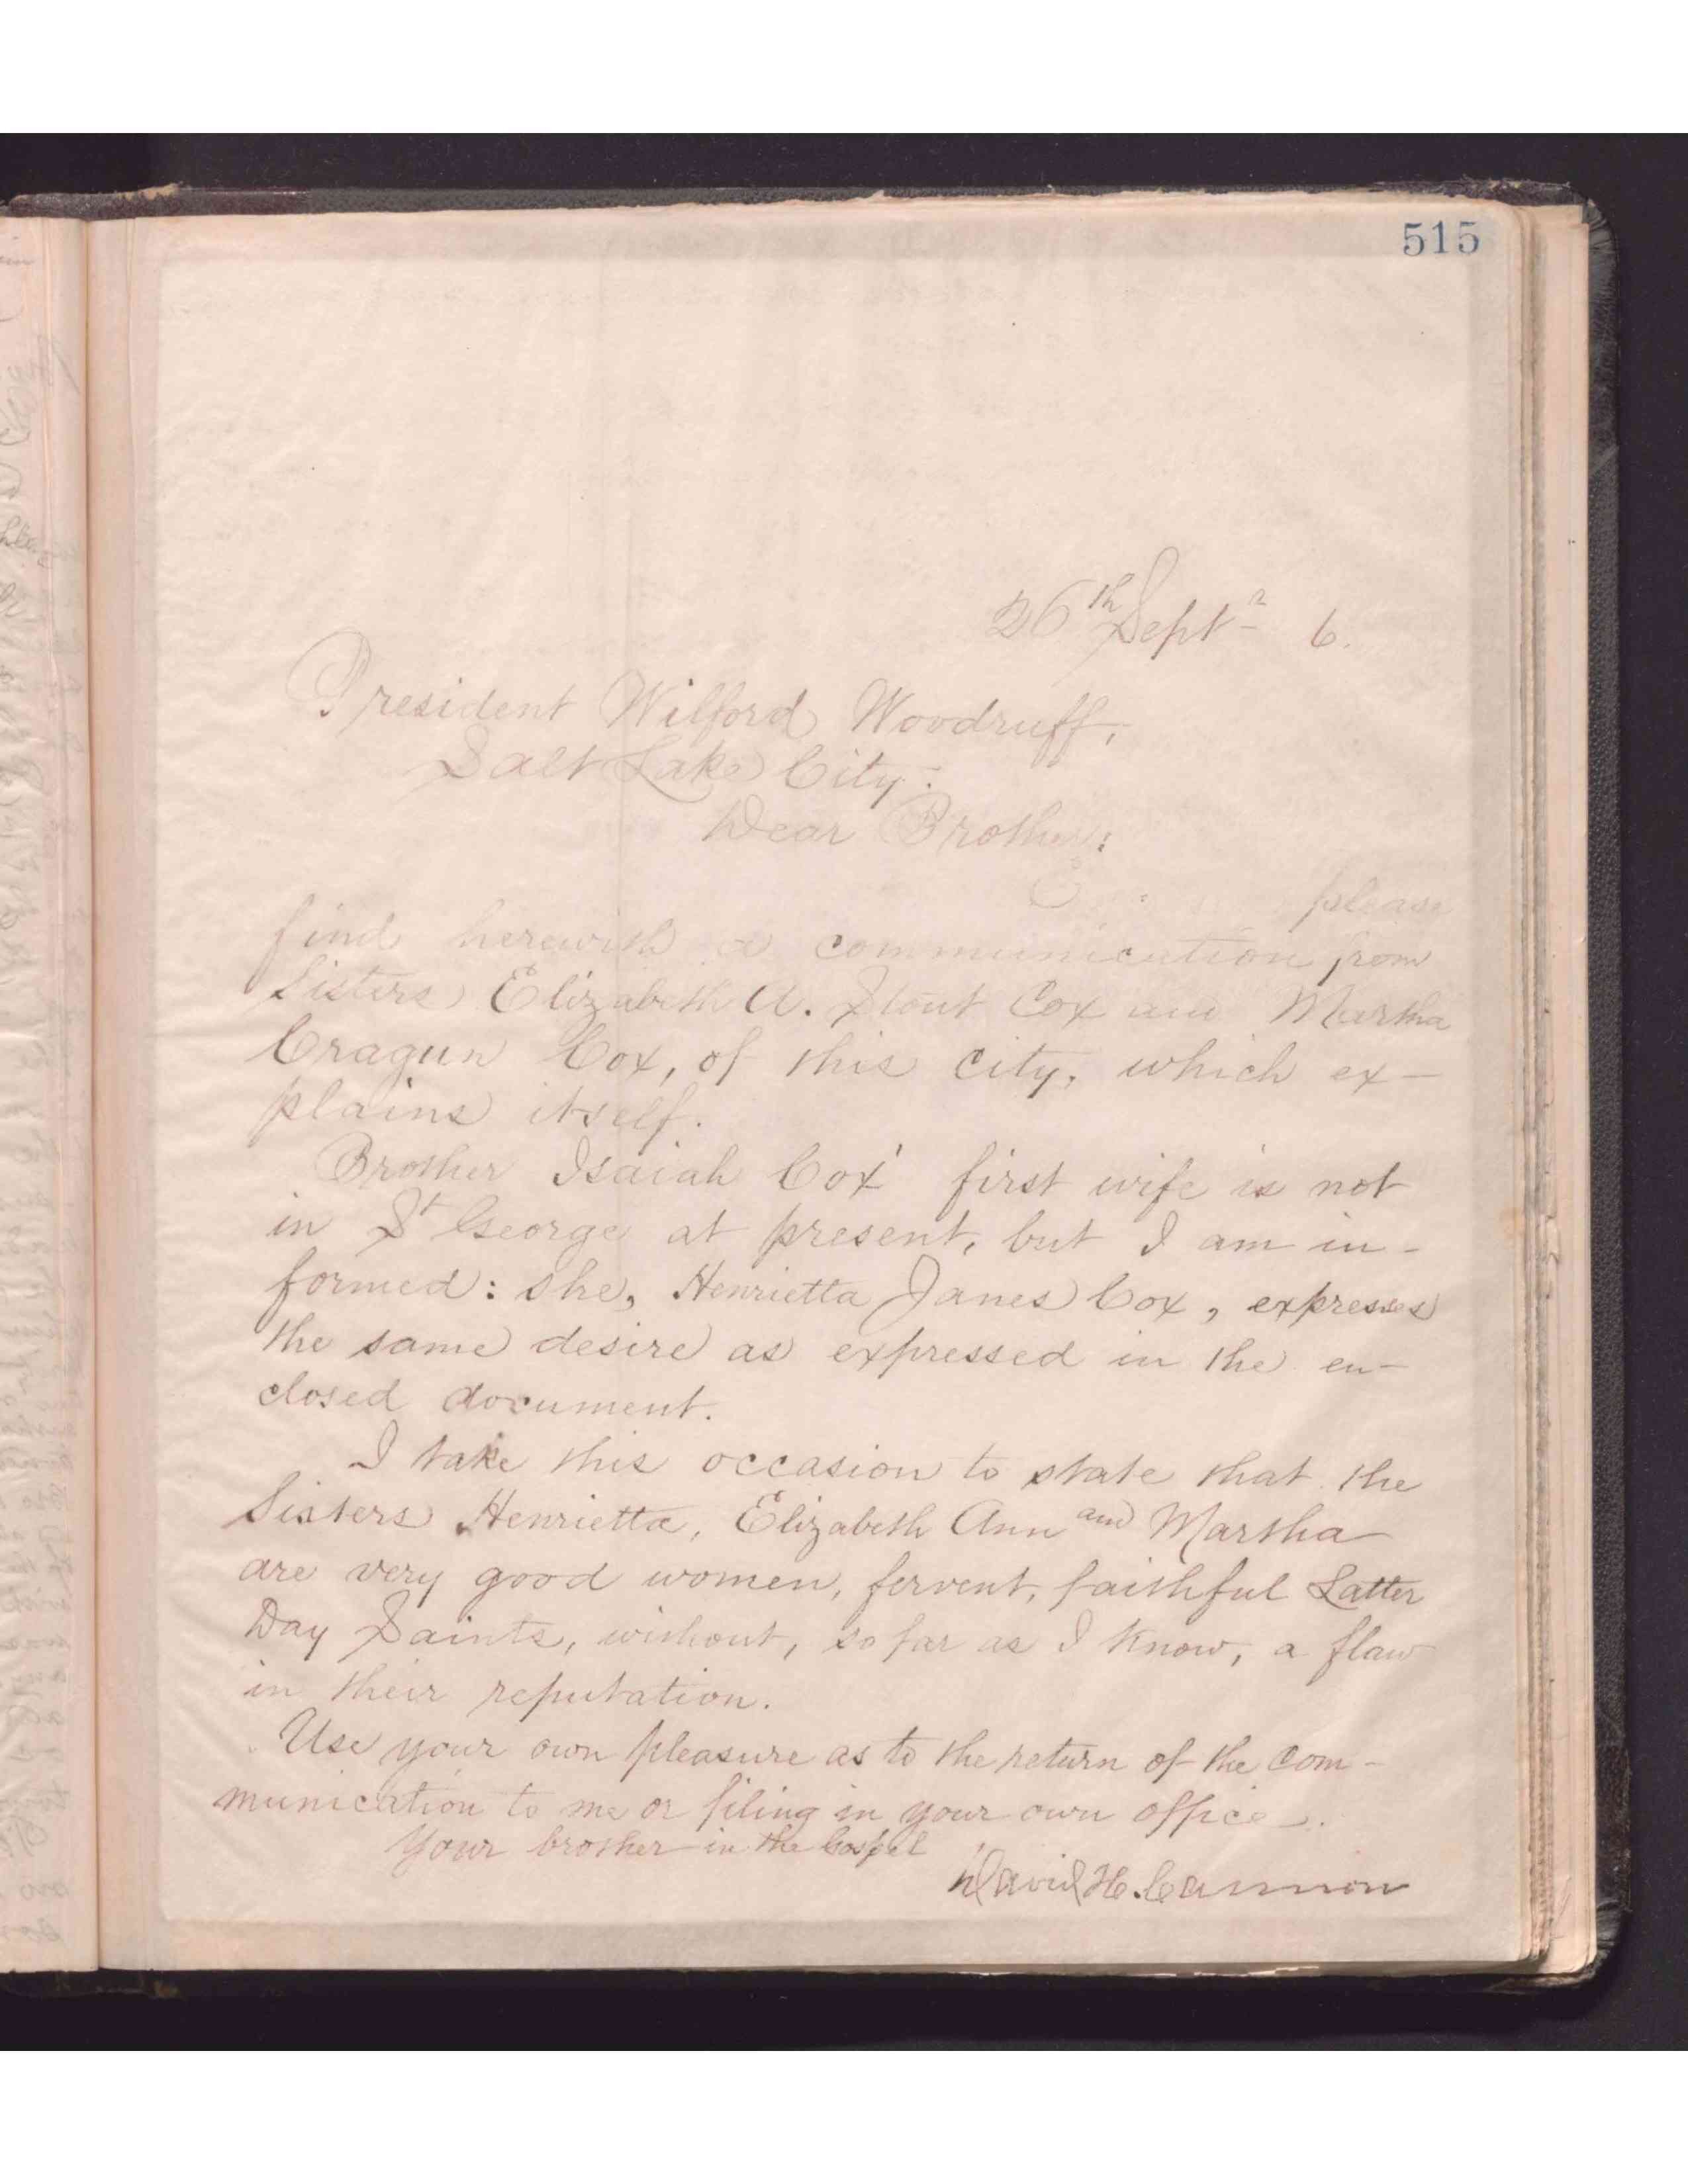 515
26th Septr 6.
President Wilford Woodruff,
Salt Lake City.
Dear Brother:
please
find herewith a communication from
Sisters Elizabeth A. Stout Cox and Martha
Cragun Cox, of this city, which ex-
plains itself.
Brother Isaiah Cox' first wife is not
in St George at present, but I am in-
formed: she, Henrietta Janes Cox, expresses
the same desire as expressed in the en-
closed document.
I take this occasion to state that the
Sisters Henrietta, Elizabeth Ann and Martha
are very good women, fervent, faithful Latter
Day Saints, without, so far as I know, a flaw
in their reputation.
Use your own pleasure as to the return of the com-
munication to me or filing in your own office.
Your brother in the Gospel
David H. Cannon